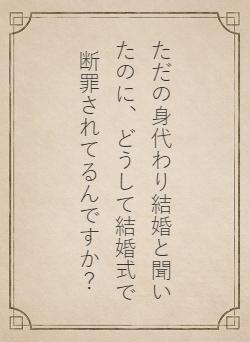 ただの身代わり結婚と聞い
たのに、どうして結婚式で
断罪されてるんですか？